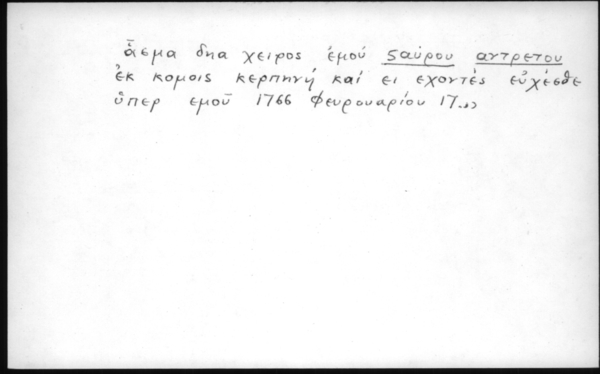 ἄεμα δηα χειρος ἐμού ςαύρου αντρετου
ἐκ κομοις κερπηνή καί ει εχοντές εὐχέσθε
ὕπερ εμοῦ 1766 Φευρουαρίου 17..»